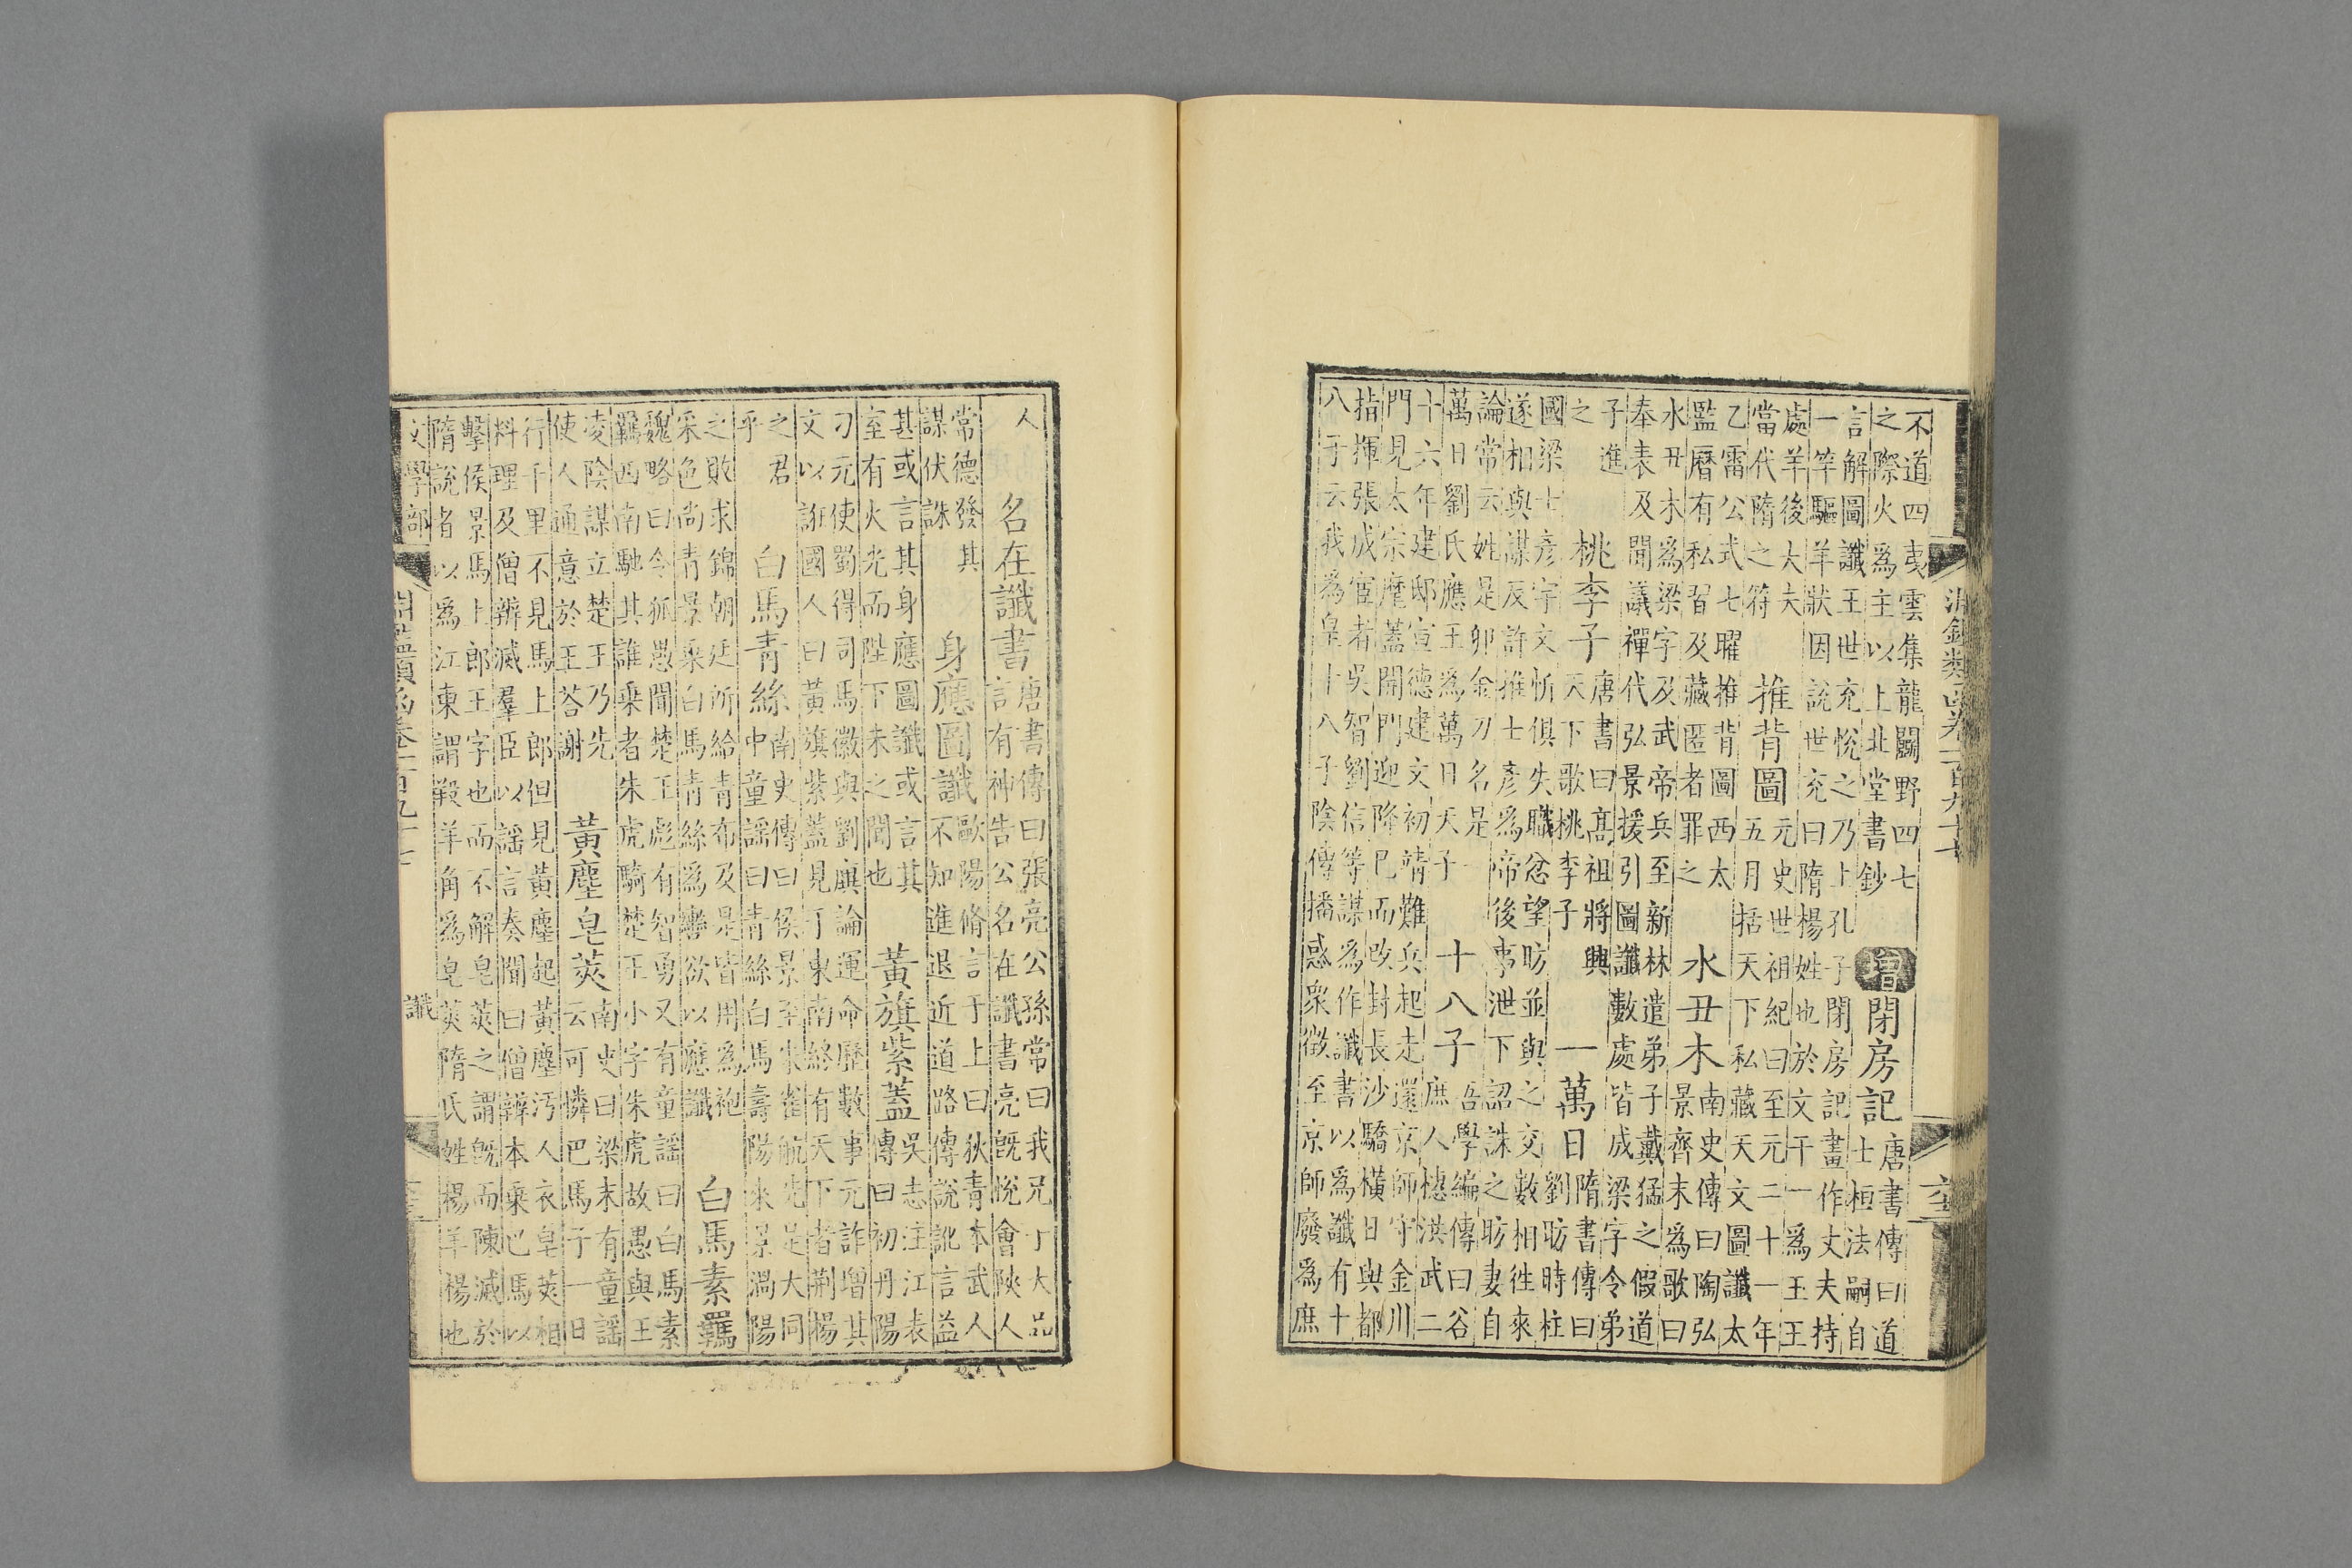 不道四夷雲集龍鬭野四七
之際火爲主以上北堂書鈔
增
閉房記
唐書傳曰道
士桓法嗣自
言解圖讖王世充悅之乃上孔子閉房記畫作丈夫持
一竿驅羊狀因說世充曰隋楊姓也於文干一爲王王
處羊後大夫
當代隋之符
推背圖
元史世祖紀曰至元二十一年
五月括天下私藏天文圖讖太
乙雷公式七曜推背圖西太
監曆有私習及藏匿者罪之
水丑木
南史傳曰陶弘
景齊末爲歌曰
水丑木爲梁字及武帝兵至新林遣弟子戴猛之假道
奉表及聞議禪代弘景援引圖讖數處皆成梁字令弟
子進
之
桃李子
唐書曰高祖將興
天下歌桃李子
一萬日
隋書傳曰
劉昉時柱
國梁士彥宇文忻俱失職忿望昉並與之交數相往來
遂相與謀反許推士彥爲帝後事泄下詔誅之昉妻自
論常云姓是卯金刀名是一
萬日劉氏應王爲萬日天子
十八子
吾學編傳曰谷
庶人橞洪武二
十六年建邸宣德建文初靖難兵起走還京師守金川
門見太宗麾蓋開門迎降已而改封長沙驕橫日與都
指揮張成宦者吳智劉信等謀爲作讖書以爲讖有十
八子云我爲皇十八子陰傳播惑衆徵至京師廢爲庶
人
名在讖書
唐書傳曰張亮公孫常曰我兄丁大品
言有神告公名在讖書亮既悅會陝人
常德發其
謀伏誅
身應圖讖
歐陽脩言于上曰狄青本武人
不知進退近道路傳說訛言益
甚或言其身應圖讖或言其
室有火光而陛下未之聞也
黃旗紫蓋
吳志注江表
傳曰初丹陽
刁元使蜀得司馬徽與劉廙論運命歷數事元詐增其
文以誑國人曰黃旗紫蓋見于東南終有天下者荆楊
之君
乎
白馬青絲
南史傳曰侯景至朱雀航先是大同
中童謠曰青絲白馬壽陽來景渦陽
之敗求錦朝廷所給青布及是皆用爲袍
采色尚青景乘白馬青絲爲轡欲以應讖
白馬素羈
魏略曰令狐愚聞楚王彪有智勇又有童謠曰白馬素
羈西南馳其誰乘者朱虎騎楚王小字朱虎故愚與王
凌陰謀立楚王乃先
使人通意於王荅謝
黃塵皂莢
南史曰梁末有童謠
云可憐巴馬子一日
行千里不見馬上郎但見黃塵起黃塵汚人衣皂莢相
料理及僧辨滅羣臣以謠言奏聞曰僧辨本乘巴馬以
擊侯景馬上郎王字也而不解皂莢之謂既而陳滅於
隋說者以爲江東謂羖羊角爲皂莢隋氏姓楊羊楊也
文學部
讖